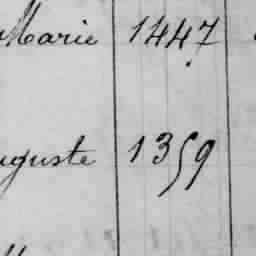 Marie 1447
uguste 1359